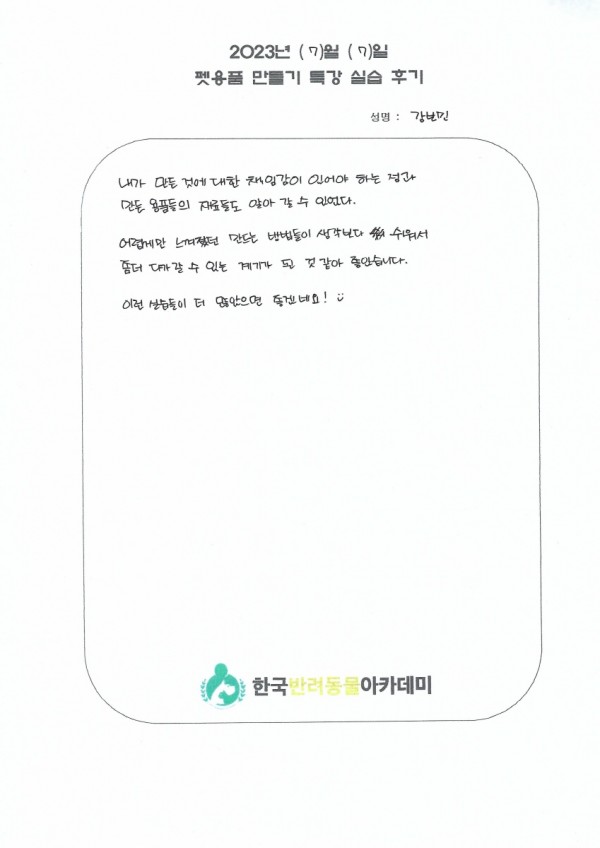 2023년 (7)월 (7)일
펫용품 만들기 특강 실습 후기
성명 : 강보민
내가 만든 것에 대한 책임감이 있어야 하는 점과
만든 용품들의 재료들도 알아 갈 수 있었다.
어렵게만 느껴졌던 만드는 방법들이 생각보다 쉬워서
좀더 다가갈 수 있는 계기가 된 것 같아 좋았습니다.
이런 실습들이 더 많았으면 좋겠네요! ☺
한국반려동물아카데미